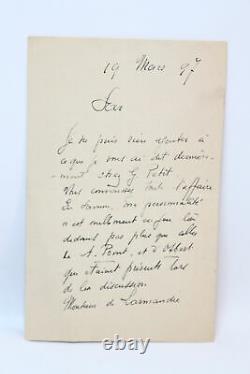 19 Mars 97
Je ne puis rien ajouter à
ce que je vous ai dit dernière-
ment chez G Petit
Vous connaissez toute l'affaire
En somme, une personnalité
n'est nullement en jeu là
dedans pas plus que celles
de A. Point, et d'Osbert
qui étaient présents lors
de la discussion